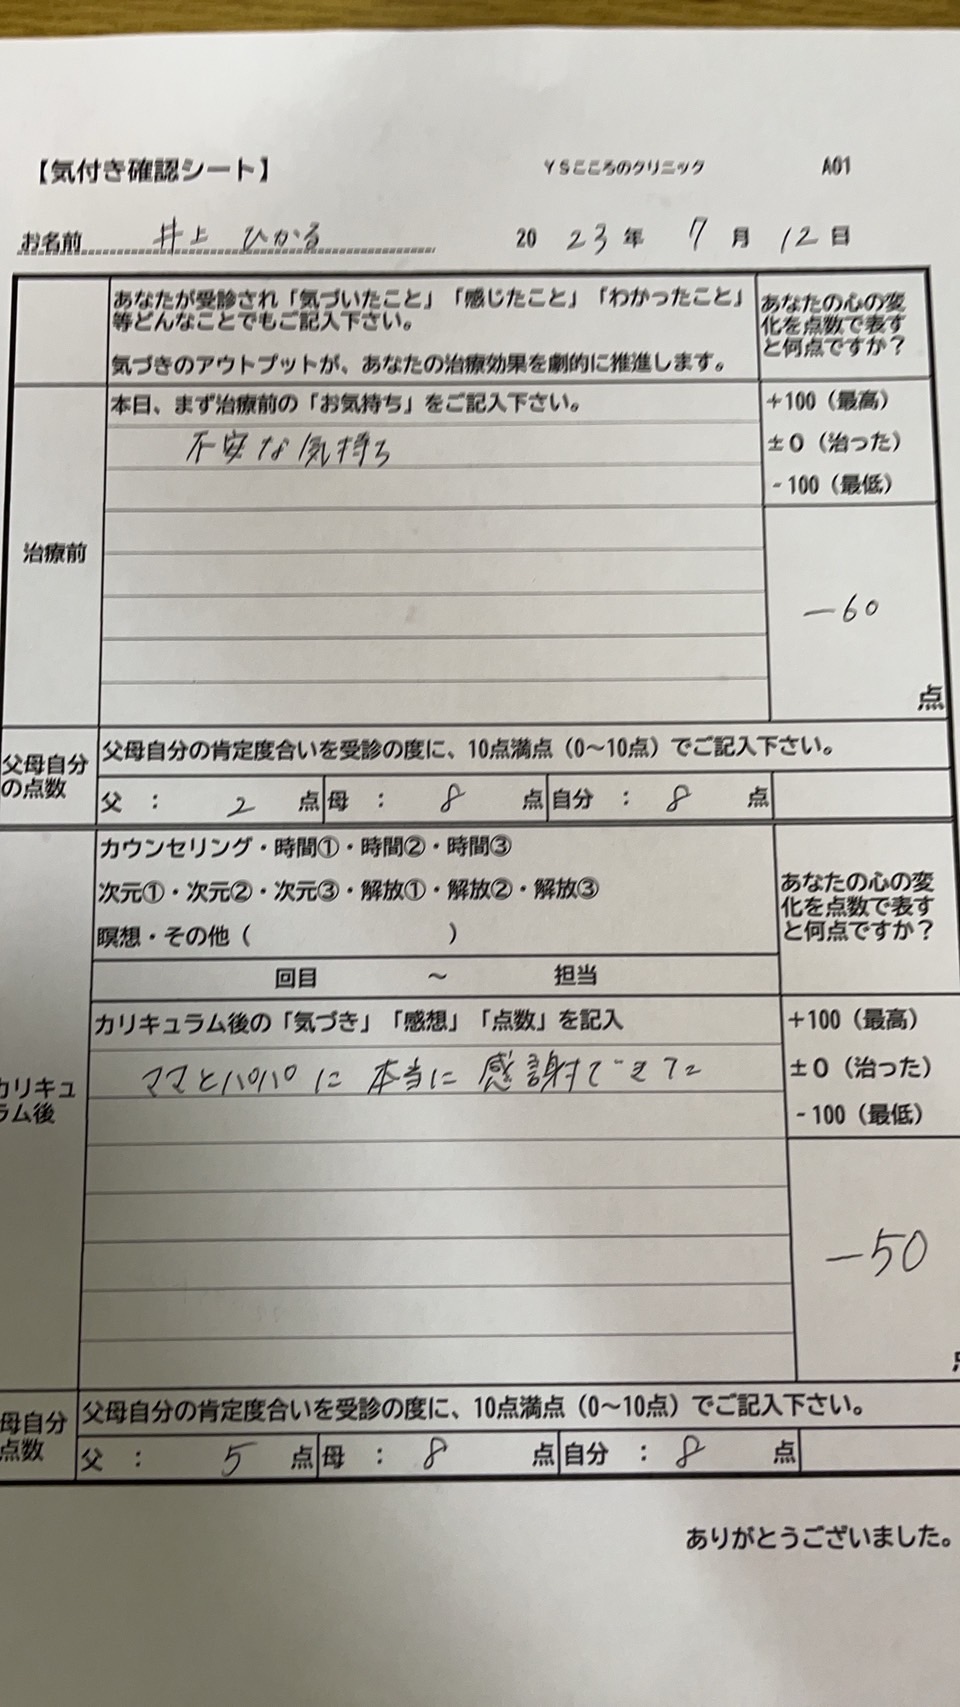 【気付き確認シート】 YSこころのクリニック A01
お名前 井上 ひかる 2023年 7月 12日
あなたが受診され「気づいたこと」「感じたこと」「わかったこと」
等どんなことでもご記入下さい。
気づきのアウトプットが、あなたの治療効果を劇的に推進します。
あなたの心の変
化を点数で表す
と何点ですか？
治療前
本日、まず治療前の「お気持ち」をご記入下さい。
不安な気持ち
+100（最高）
±0（治った）
-100（最低）
-60
点
父母自分
の点数
父母自分の肯定度合いを受診の度に、10点満点（0〜10点）でご記入下さい。
父 ： 2 点 母 ： 8 点 自分 ： 8 点
カウンセリング・時間①・時間②・時間③
次元①・次元②・次元③・解放①・解放②・解放③
瞑想・その他（ ）
回目 〜 担当
あなたの心の変
化を点数で表す
と何点ですか？
カリキュ
ラム後
カリキュラム後の「気づき」「感想」「点数」を記入
ママとパパに 本当に 感謝できた
+100（最高）
±0（治った）
-100（最低）
-50
母自分
点数
父母自分の肯定度合いを受診の度に、10点満点（0〜10点）でご記入下さい。
父 ： 5 点 母 ： 8 点 自分 ： 8 点
ありがとうございました。